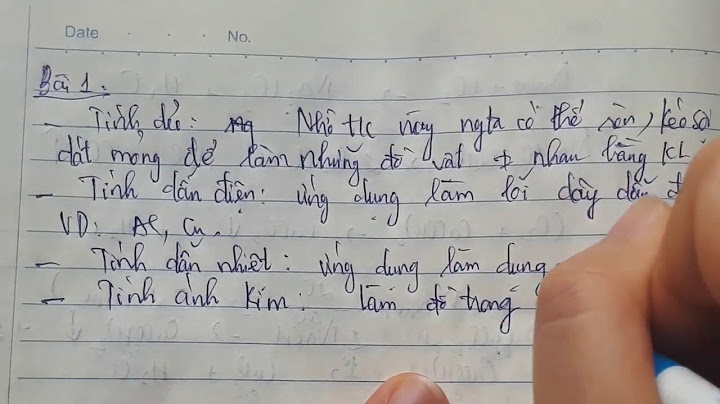 Date . . . No.
Bài 1:
- Tính dẻo: Nhờ t/c này ngta có thể rèn, kéo sợi
dát mỏng để làm những đồ vật ≠ nhau bằng KL
- Tính dẫn điện: ứng dụng làm lõi dây dẫn đ
VD: Al, Cu.
- Tính dẫn nhiệt: ứng dụng làm dụng
- Tính ánh kim: làm đồ trang